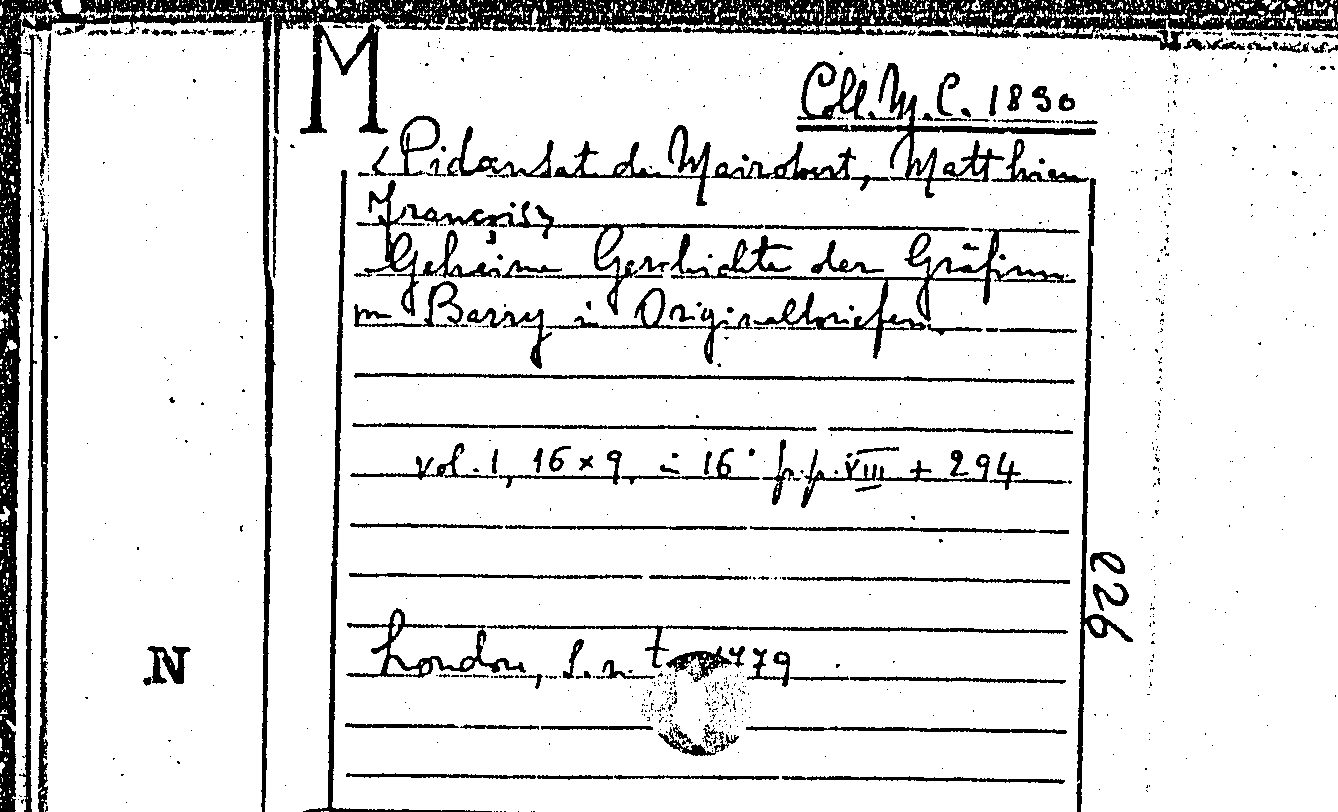 M
Coll. M. C. 1890
<Pidansat de Mairobert, Matthieu
François>
Geheime Geschichte der Gräfinn
Barry in Originalbriefen.
vol. 1, 16 x 9, in 16° pp. VIII + 294
226
London, s. n. t. 1779
N